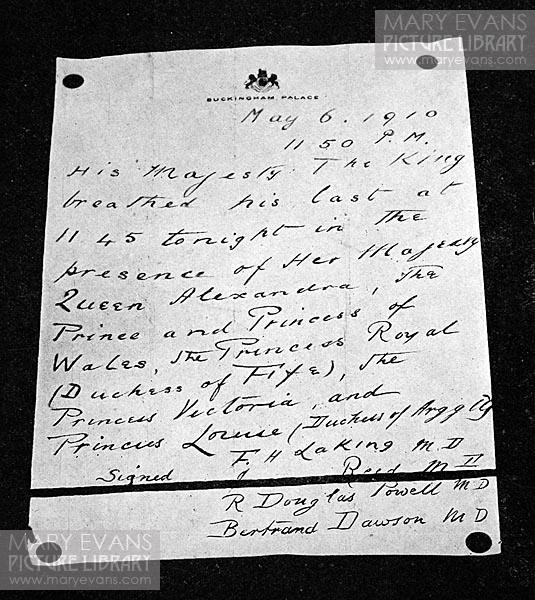 MARY EVANS
PICTURE LIBRARY
www.maryevans.com
BUCKINGHAM PALACE
May 6. 1910
11 50 P.M.
His Majesty The King
breathed his last at
11 45 tonight in The
presence of Her Majesty
Queen Alexandra, The
Prince and Princess of
Wales, the Princess Royal
(Duchess of Fife), the
Princess Victoria, and
Princess Louise (Duchess of
F H Laking M.D
Signed J Reid M D
R Douglas Powell M D
Bertrand Dawson M D
MARY EVANS
PICTURE LIBRARY
www.maryevans.com